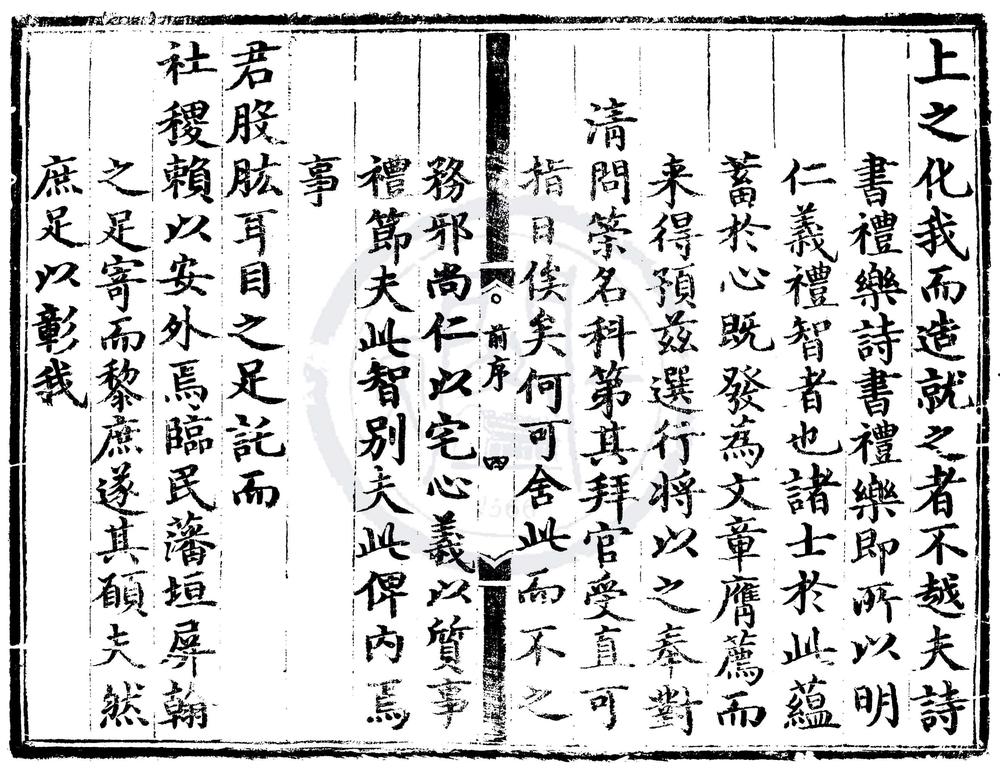 上之化我而造就之者不越夫詩
書禮樂詩書禮樂即所以明
仁義禮智者也諸士於此蘊
蓄於心既發為文章膺薦而
来得預茲選行将以之奉對
清問榮名科第其拜官受直可
指日俟矣何可舍此而不之
前序
四
務邪尚仁以宅心義以質事
禮節夫此智别夫此俾内焉
事
君股肱耳目之足託而
社稷賴以安外焉臨民藩垣屏翰
之足寄而黎庶遂其願夫然
庶足以彰我